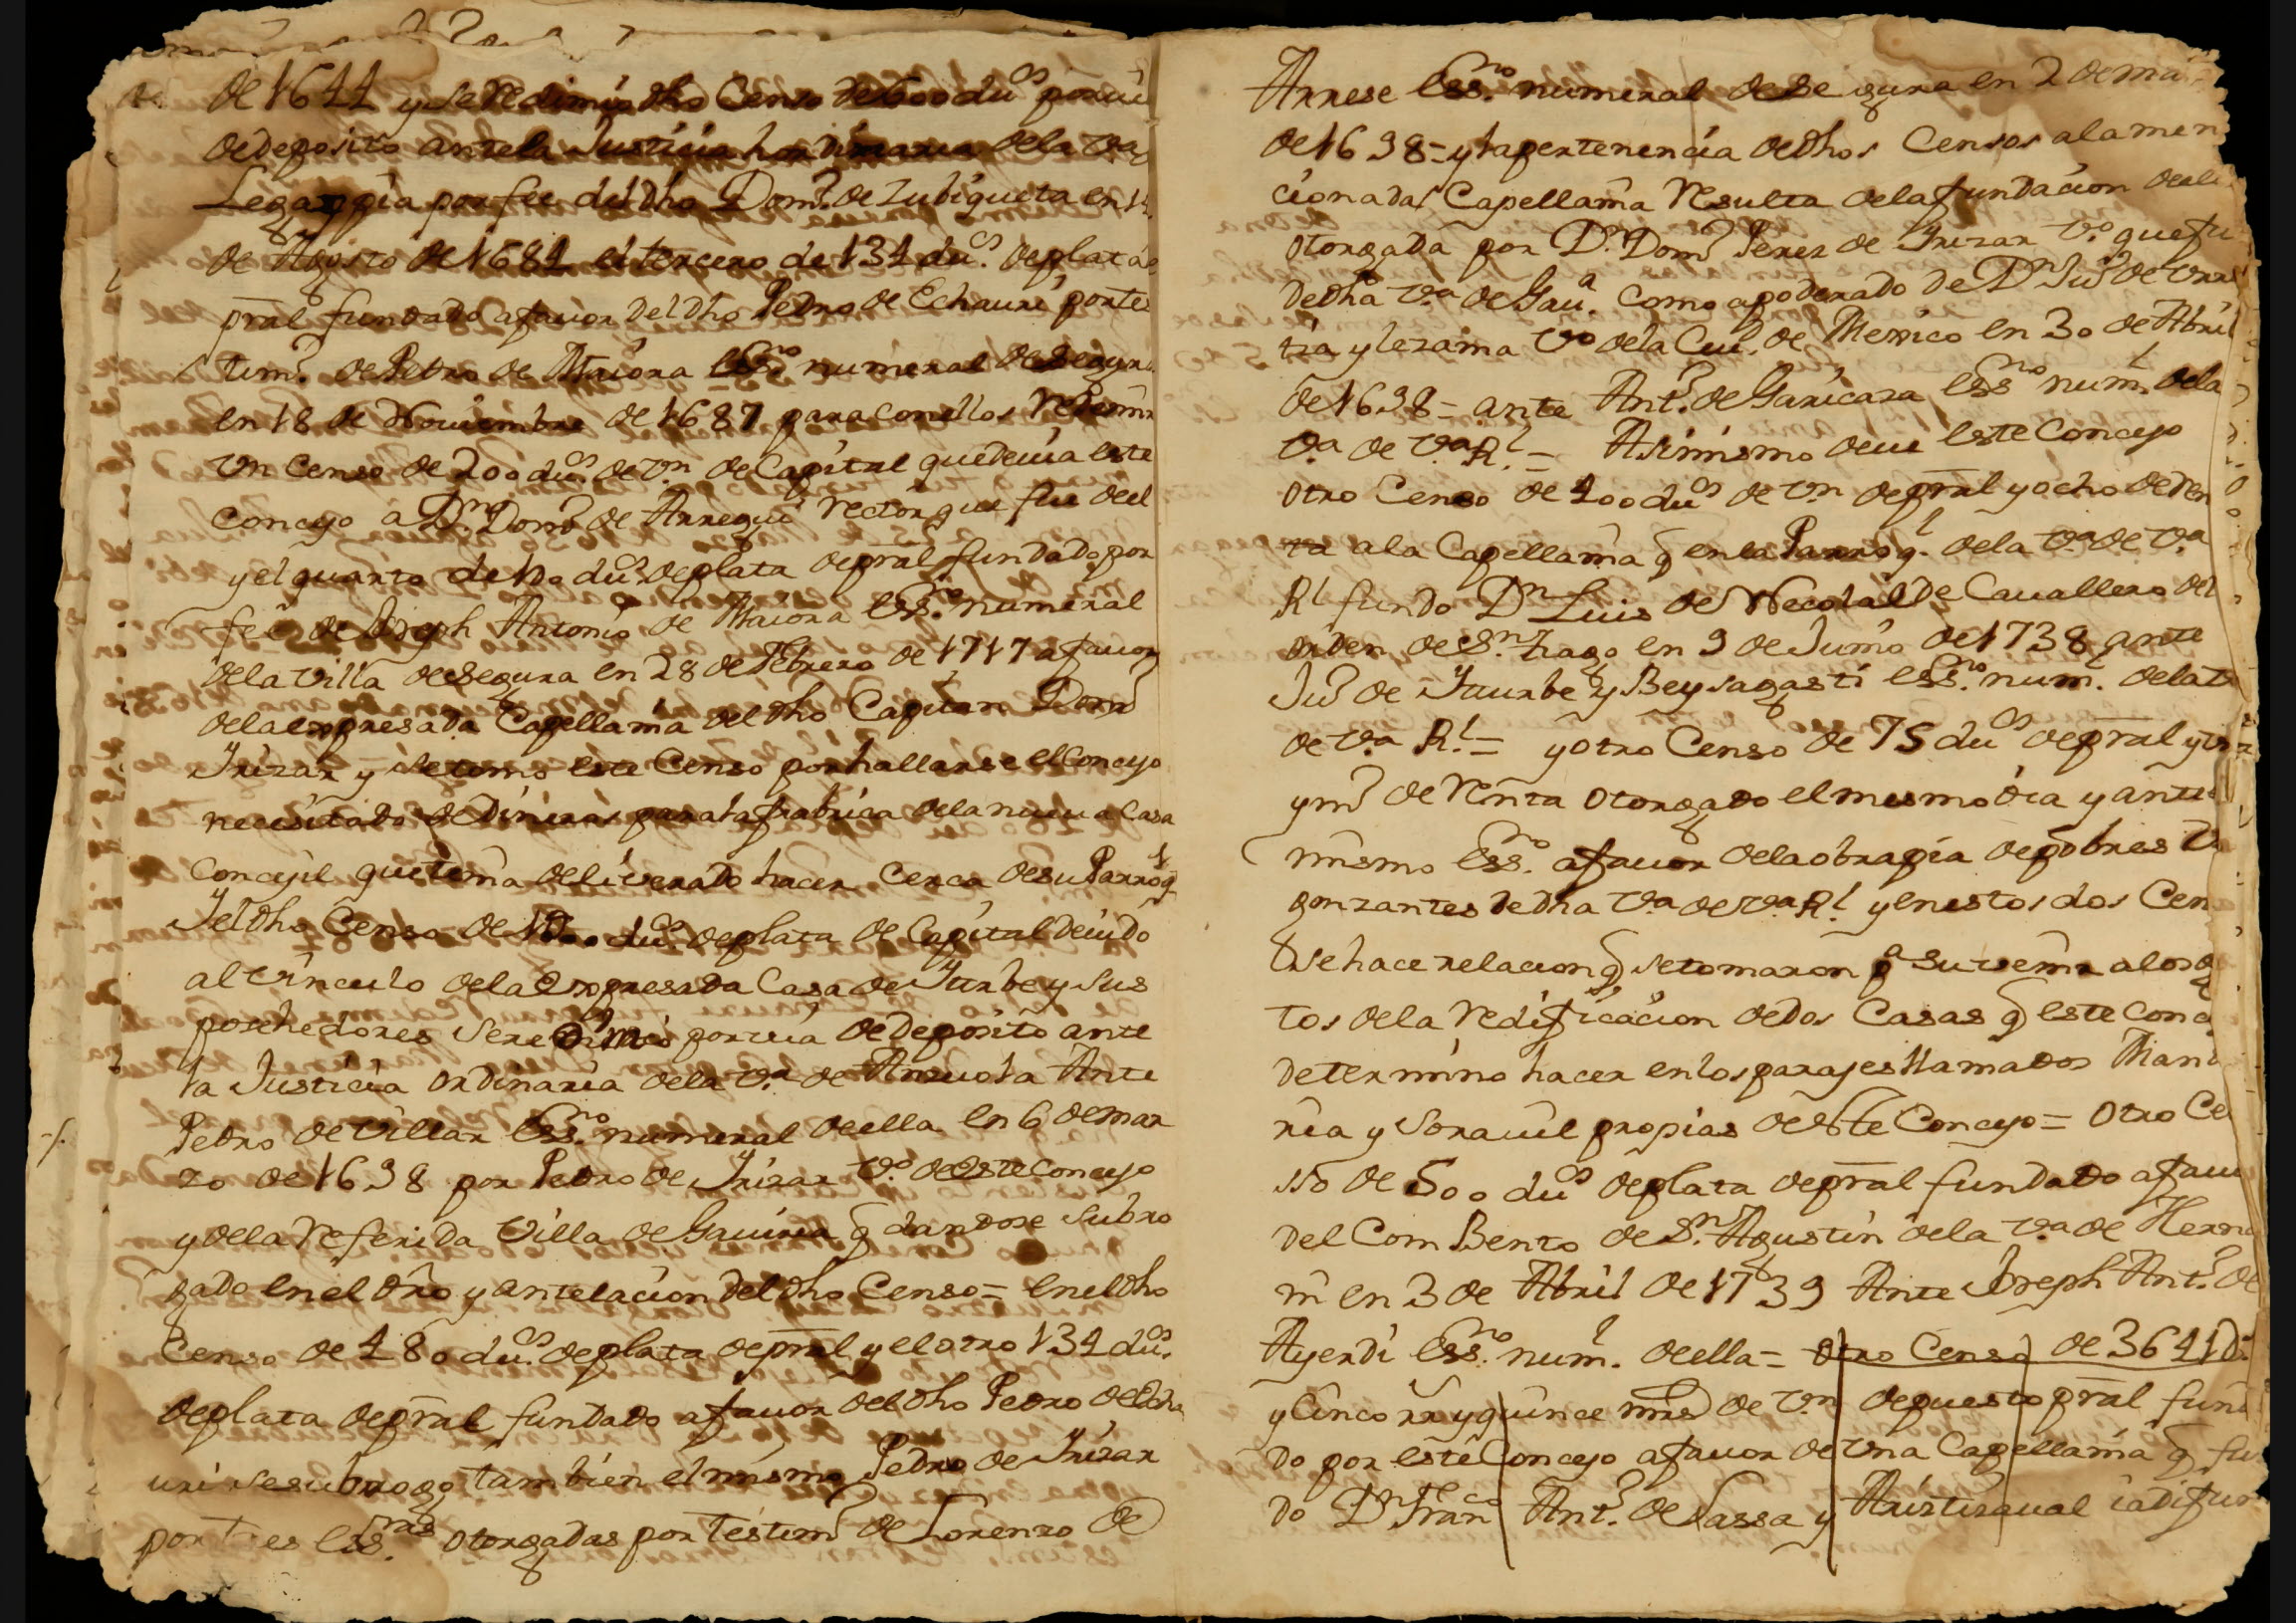 de 1644 y se redimio dho Censo de 600 du.s por via
de deposito ante la Justicia hordinaria de la v.a
Legazpia por fee del dho Dom.o de Zubiqueta en
de Agosto de 1684 el tercero de 134 du.s de plata de
pral fundado a fauor del dho Pedro de Echauri por tes
tim.o de Pedro de Maiora Ess.no numeral de Segura
en 18 de Nouiembre de 1687 para con ellos redimir
vn Censo de 200 du.s de v.n de Capital que deuia este
Concejo a D.n Dom.o de Arregui rector que fue de el
y el quarto de 100 du.s de plata de pral fundado por
fee de Joseph Antonio de Maiora Ess.no numeral
de la villa de Segura en 28 de Febrero de 1717 a fauor
de la expresada Capellania del dho Capitan Dom.o
Yrizar y se tomo este Censo por hallarse el Concejo
necesitado de dineros para la frabrica de la nueua Casa
Concejil que tenia deliverado hacer cerca de su Parroq.l
Y el dho Censo de du.s de plata de Capital deuido
al vinculo de la expresada Casa de Yturbe y sus
posehedores se redimio por via de deposito ante
la Justicia ordinaria de la v.a de Anzuola Ante
Pedro de Villar Ess.no numeral de ella en 6 de mar
zo de 1698 por Pedro de Yrizar v.o de este Concejo
y de la referida Villa de Gauiria q dandose subro
gado en el dro y antelacion del dho Censo = en el dho
Censo de 480 du.s de plata de pral y el otro 134 du.s
de plata de pral fundado a fauor del dho Pedro de Echa
uri se subrogo tambien el mismo Pedro de Yrizar
por tres Ess.ras otorgadas por testim.o de Lorenzo de
Arrese Ess.no numeral de Segura en 2 de
de 1698 = y la pertenencia de dhos Censos a la men
cionada Capellania resulta de la fundacion de
otorgada por D.n Dom.o Perez de Yrizar v.o que fu
de dha v.a de Gau.a como apoderado de D.n Ju.o de Vrru
tia y lezama v.o de la Ciu.d de Mexico en 30 de Abril
de 1698 = ante Ant.o de Garicara Ess.no num.l de la
v.a de v.a R.l = Asimismo deue este Concejo
otro Censo de 400 du.s de v.n de pral y ocho de ren
ta a la Capellania q en la Parroq.l de la v.a de v.a
R.l fundo D.n Luis de Necolalde Cauallero del
orden de S.n tiago en 9 de Junio de 1738 ante
Ju.o de Yturbe y Beysagasti Ess.no num.l de la
de v.a R.l = y otro Censo de 75 du.s de pral y
y m.o de renta otorgado el mesmo dia y ante
mismo Ess.no a fauor de la obra pia de pobres
gonzantes de dha v.a de v.a R.l y en estos dos Cen
se hace relacion q se tomaron p.a suvenir a los
tos de la redificacion de dos Casas q este Conc
determino hacer en los parajes llamados
ria y Sorauil propias de este Concejo = Otro Ce
nso de 500 du.s de plata de pral fundado a fau
del Combento de S.n Agustin de la v.a de Herna
ni en 3 de Abril de 1739 Ante Joseph Ant.o de
Ayerdi Ess.no num.l de ella = otro Censo de 3641
y Cinco rr y quince mrs de v.n de puesto pral fun
do por este Concejo a fauor de vna Capellania q fu
do D.n Fran.co Ant.o de Sassa y Aristizaual